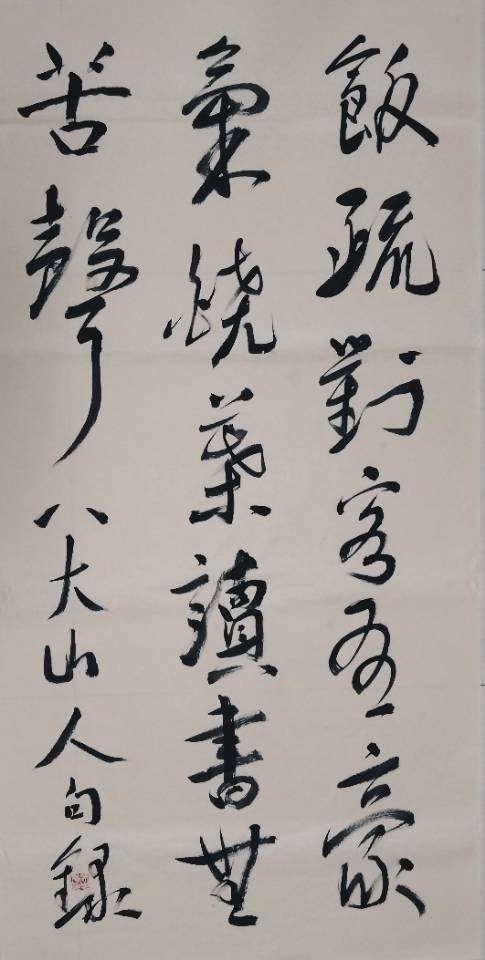 飯疏對客有豪
氣燒葉讀書無
苦聲八大山人句錄